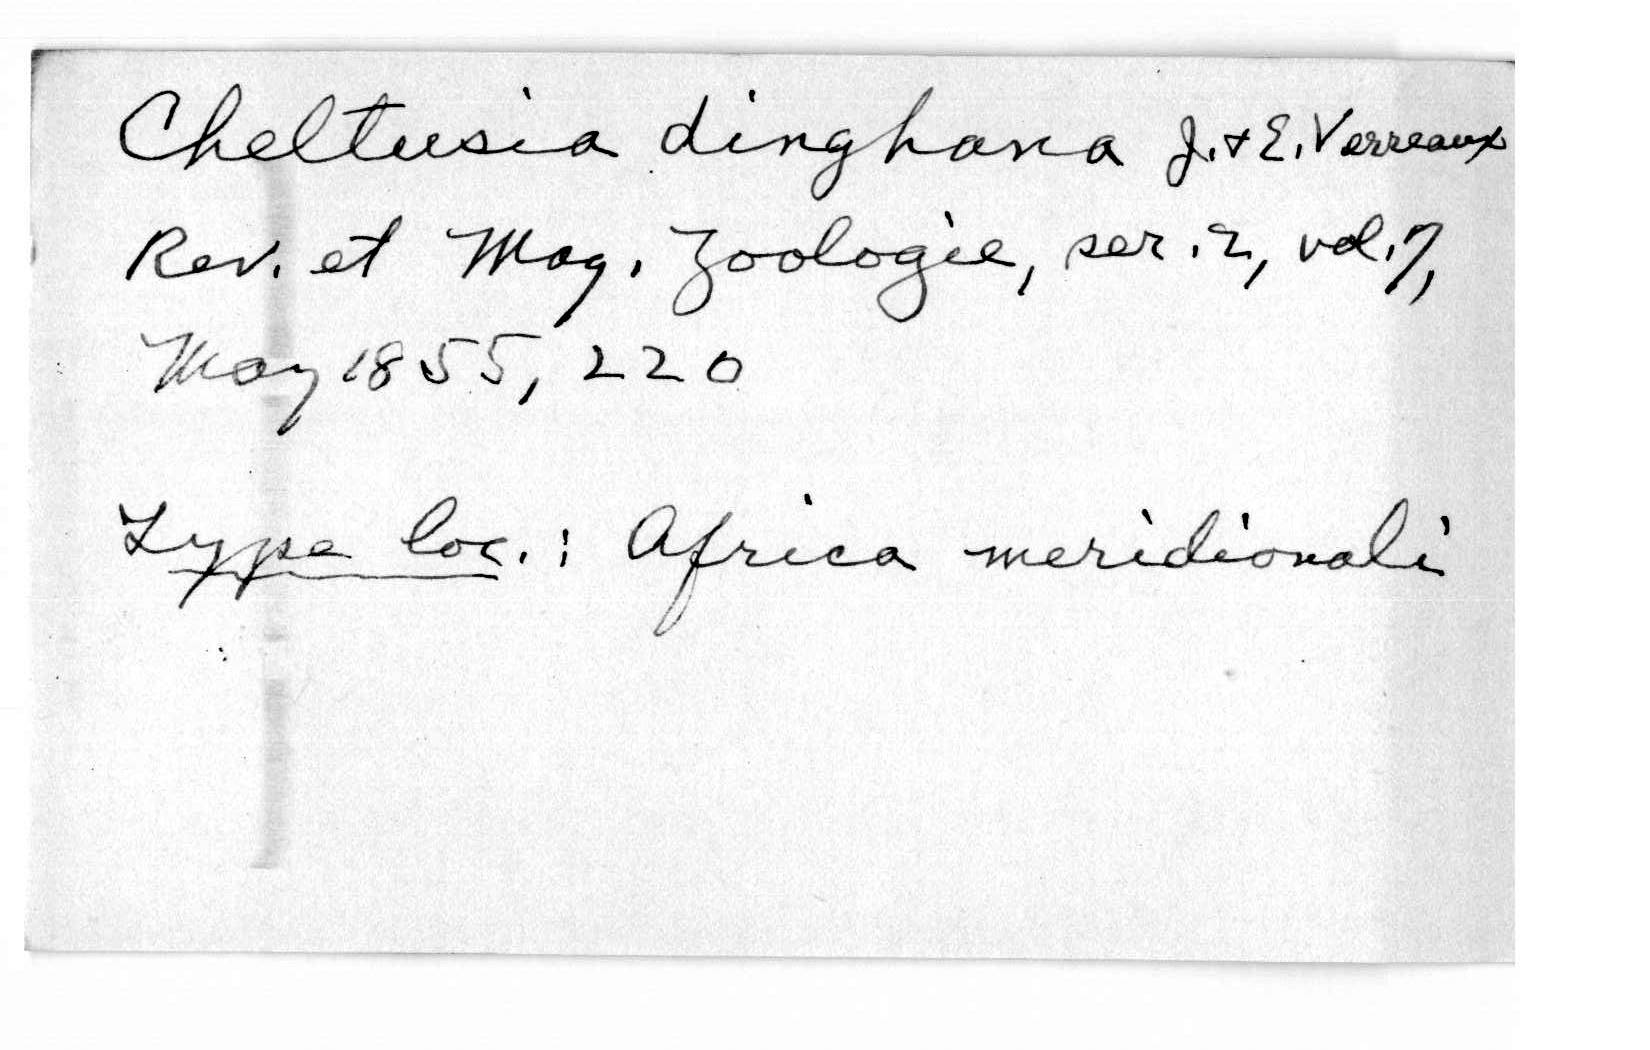 Cheltusia dinghana J. + E. Verreaux
Rev. et Mag. Zoologie, ser. 2, vol. 7,
May 1855, 220
Type loc.: Africa meridionali